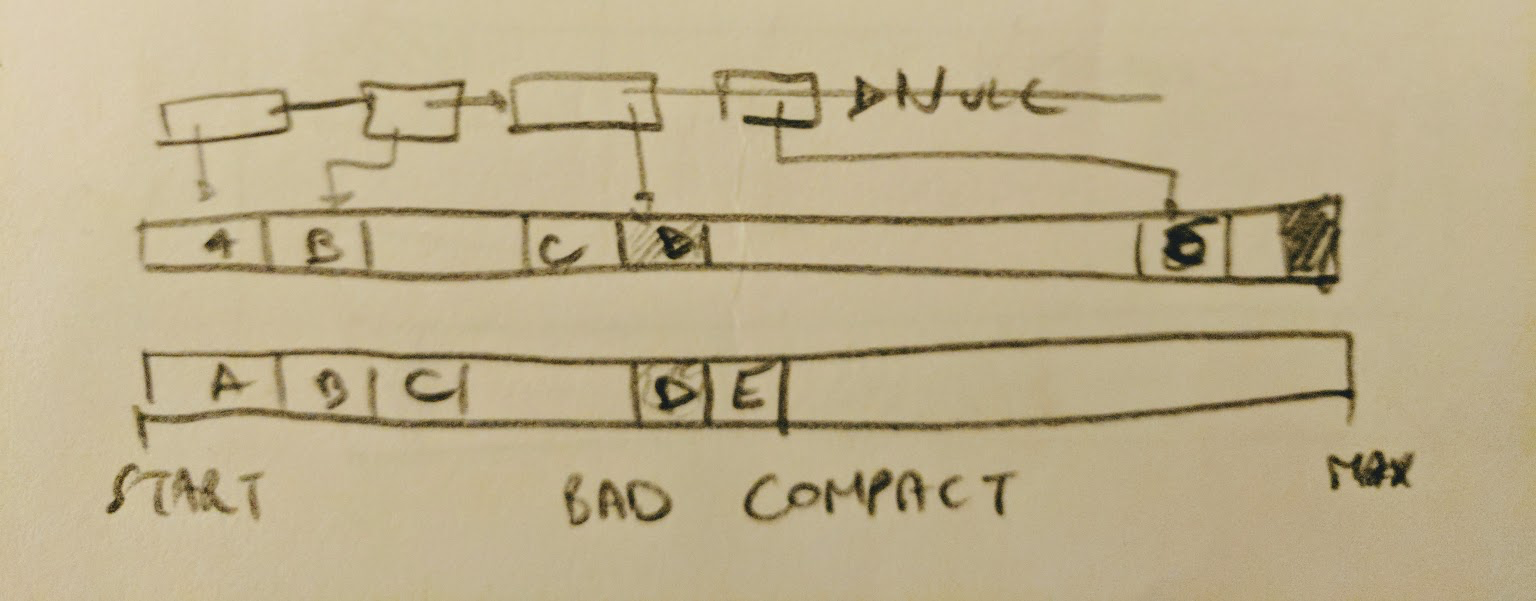 NULL
A B C D
A B C D E
START BAD COMPACT MAX